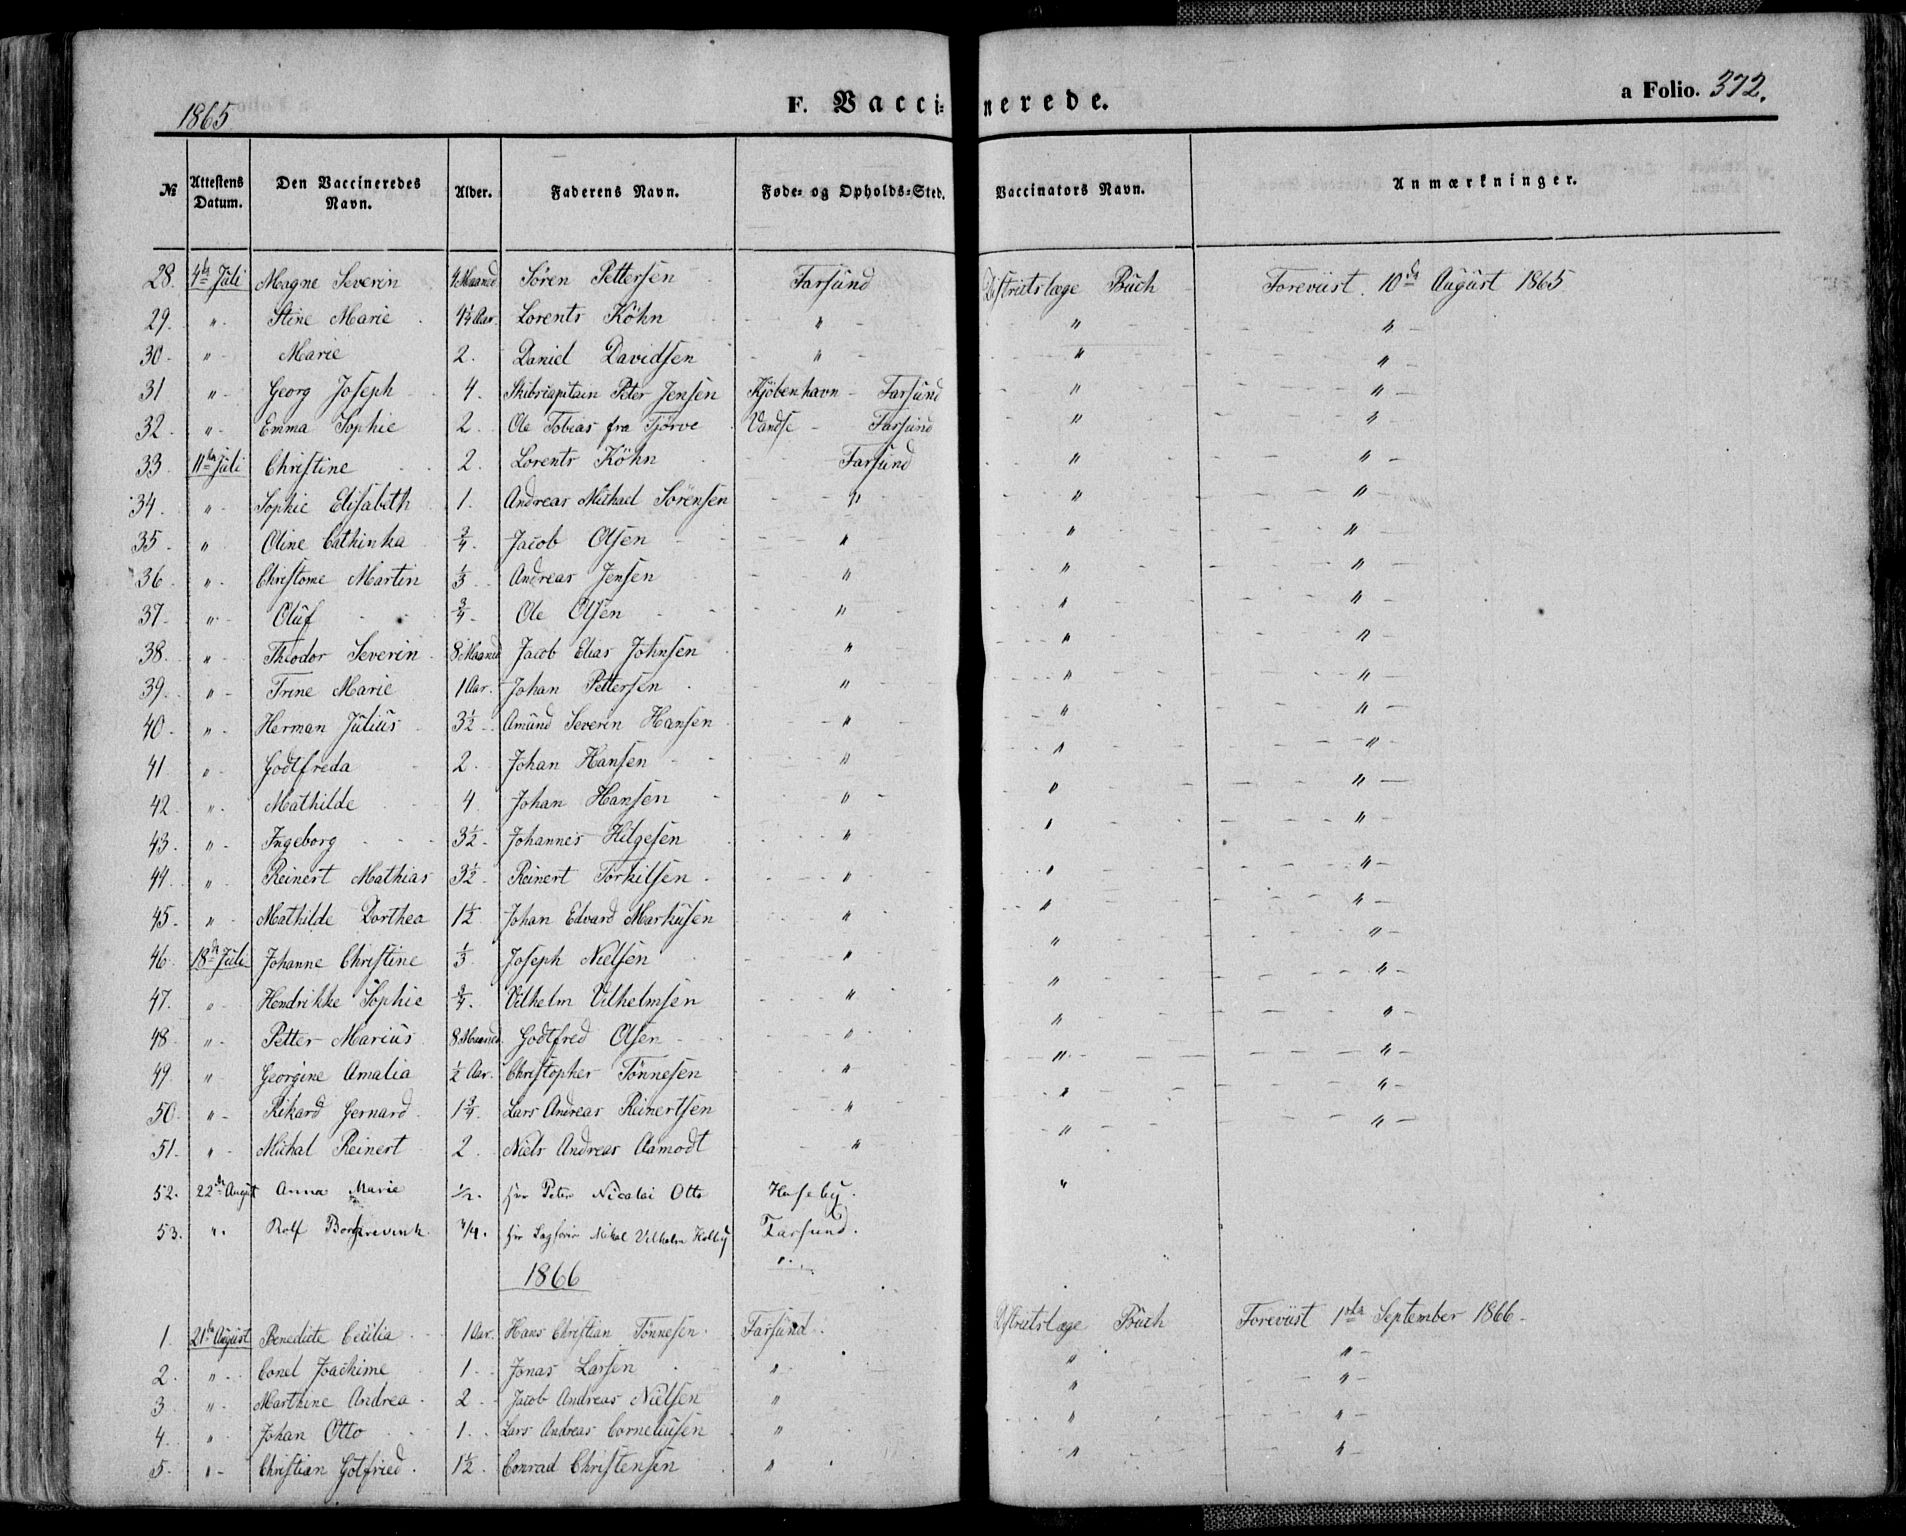 1865
F. Vaccinerede.
a Folio. 372.
№ Attestens Datum. Den Vaccineredes Navn. Alder. Faderens Navn. Føde- og Opholds-Sted. Vaccinators Navn. Anmærkninger.
28. 4de Juli Magne Severin 4 Maaned Sören Pettersen Farsund Distriktslæge Buch Foreviist 10de August 1865
29. " - Stine Marie 4½ Aar Lorents Köhn " " "
30. " - Marie 2. Daniel Davidsen " " "
31 " - Georg Joseph 4. Skibscapitain Peter Jensen Kjöbenhavn - Farsund " "
32. " - Emma Sophie 2. Ole Tobias fra Tjörve Vandse - Farsund " "
33. 11te Juli Christine 2. Lorents Köhn Farsund " "
34. " - Sophie Elisabeth 1. Andreas Michael Sörensen " " "
35. " Oline Cathinka ¾. Jacob Olsen " " "
36. " - Martin ⅓ Andreas Jensen " " "
37. " - Oluf ¾. Ole Olsen " " "
38. " - Theodor Severin 8 Maaned Jacob Elias Johnsen " " "
39. " - Trine Marie 1 Aar. Johan Pettersen " " "
40. " - Herman Julius 3½ Amund Severin Hansen " " "
41 " - Godtfreda 2. Johan Hansen " " "
42. " - Mathilde 4 Johan Hansen " " "
43. " - Ingeborg 3½. Johannes Helgesen " " "
44. " - Reinert Mathias 3½. Reinert Törkilsen " " "
45. " - Mathilde Dorthea 1½ Johan Edvard Markusen " " "
46. 18de Juli Johanne Christine ⅓ Joseph Nielsen " " "
47. " - Hendrikke Sophie ¾. Vilhelm Vilhelmsen " " "
48 " - Petter Marius 8 Maaned. Godtfred Olsen " " "
49. " Georgine Amalia ½ Aar. Christopher Tönnesen " " "
50. " - Rikard Gernard 1¾. Lars Andreas Reinertsen " " "
51. " - Michal Reinert 2. Niels Andreas Aamodt " " "
52. 22de August Anna Marie ½. Hr Peter Nicolai Otto Huseby. "
53. ". Rolf Borchrevink ¾. Hr Sagförer Mikal Vilhelm Farsund.
1866 "
1. 21de August Benedicte Cecilia 1 Aar. Hans Christian Tönnesen. Farsund. Distriktslæge Buch Foreviist 1ste September 1866.
2. " Conel Joachime 1. Jonas Larsen " " "
3. " Marthine Andrea 2. Jacob Andreas Nielsen " " "
4. " Johan Otto 1. Lars Andreas Corneliusen " " "
5. " - Christian Gotfried 1½. Conrad Christensen " " "